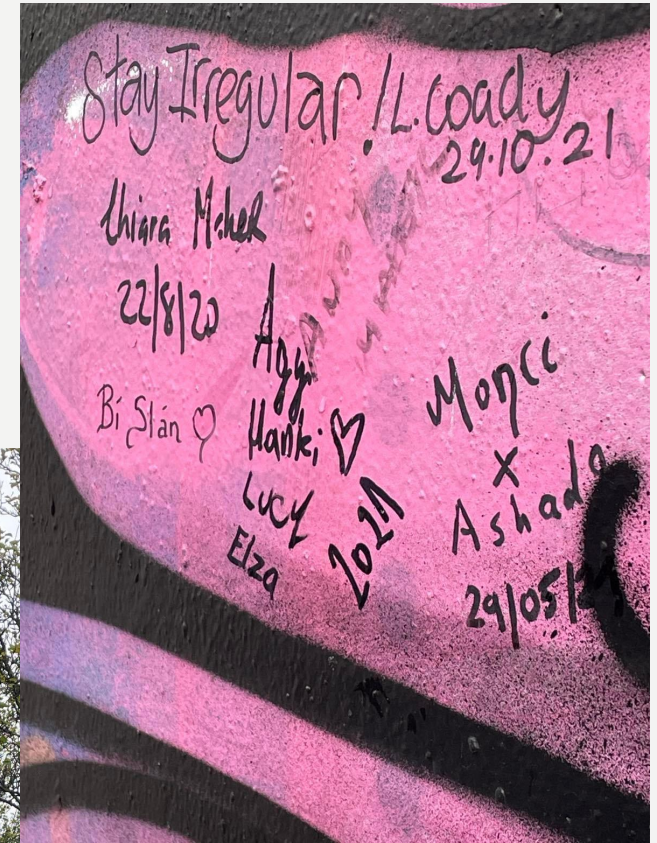 Stay Irregular! L. Coady
29.10.21
Chiara Maher
22/8/20
Bí Slán ♡
Aggi
Hanki ♡
Lucy
Elza
2021
Monci
x
Ashado
29/05/